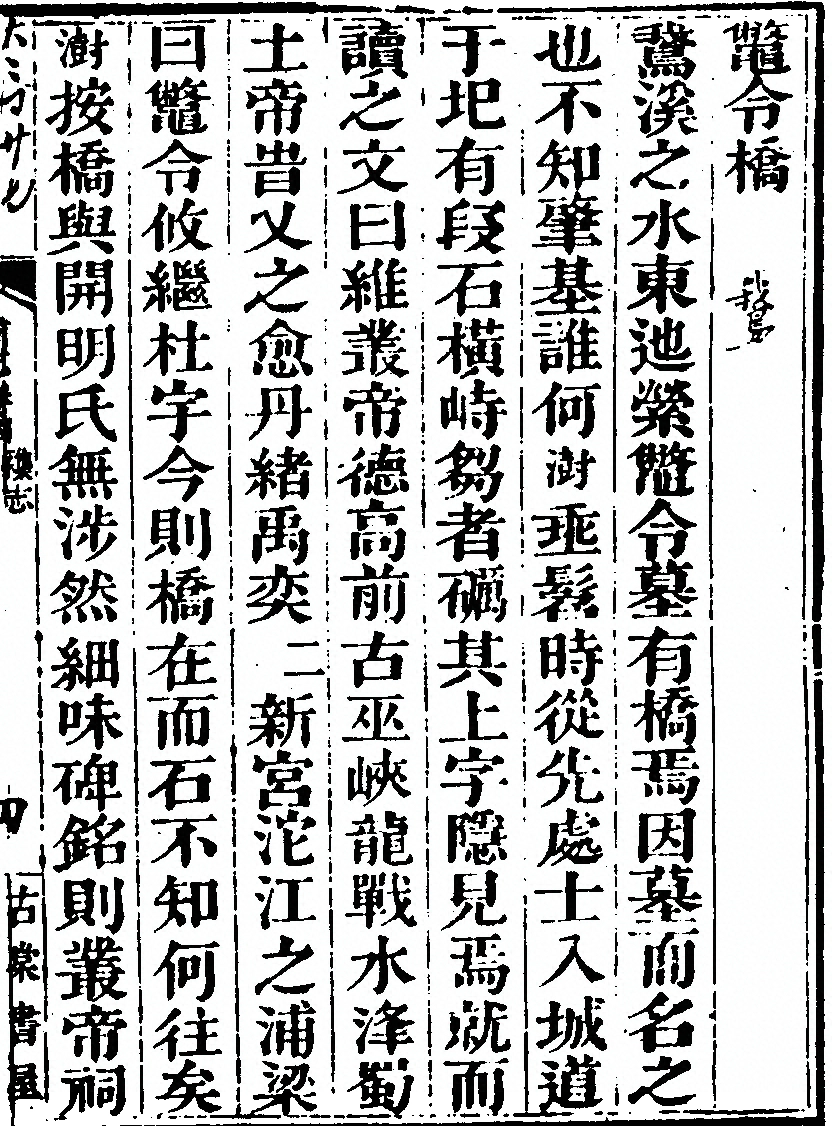 鼈令橋
鵞溪之水東迤縈鼈令墓有橋焉因墓而名之
也不知肇基誰何澍垂髫時從先處士入城道
于圯有段石橫峙芻者礪其上字隱見焉就而
讀之文曰維叢帝德高前古巫峽龍戰水洚蜀
土帝旹乂之愈丹緒禹奕二新宮沱江之浦梁
曰鼈令攸繼杜宇今則橋在而石不知何往矣
澍按橋與開明氏無涉然細味碑銘則叢帝祠
志
四
古棠書屋